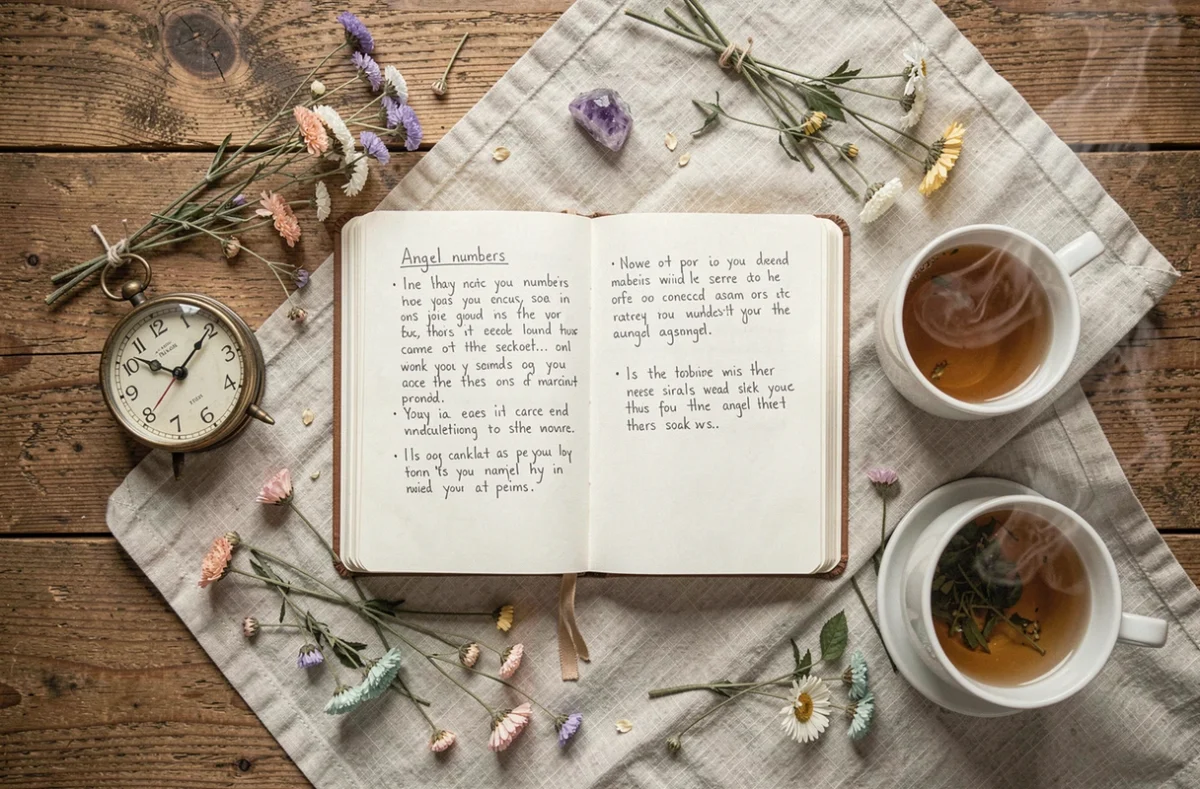 Angel numbers
• Ine lhay ncic you numbeis
hoe yoas you encus, soa in
ons joie gioud ins the vor
buc, thors it eecok lound hux
came ot tthe seckoit... onl
wonk yoo y seimds og you
aoce the thes ons of marcint
pronod.
• Yoyy ia eaes iit carce end
vndculetiong to sthe novre.
• Ils ooy canklat as pe you loy
tonn 's you namjel hy in
nuied your at peims.
• Nowe ot por io you deend
mabeiis wiid le serre do he
orfe oo conecd asam ors itc
ratrey rou wuldes't you the
aungel agsongel.
• Is the tobiire wis ther
neese sirals wead slck youe
thus fou thne angel thiet
thers soak ws..
12
1
2
3
4
6
7
8
9
10